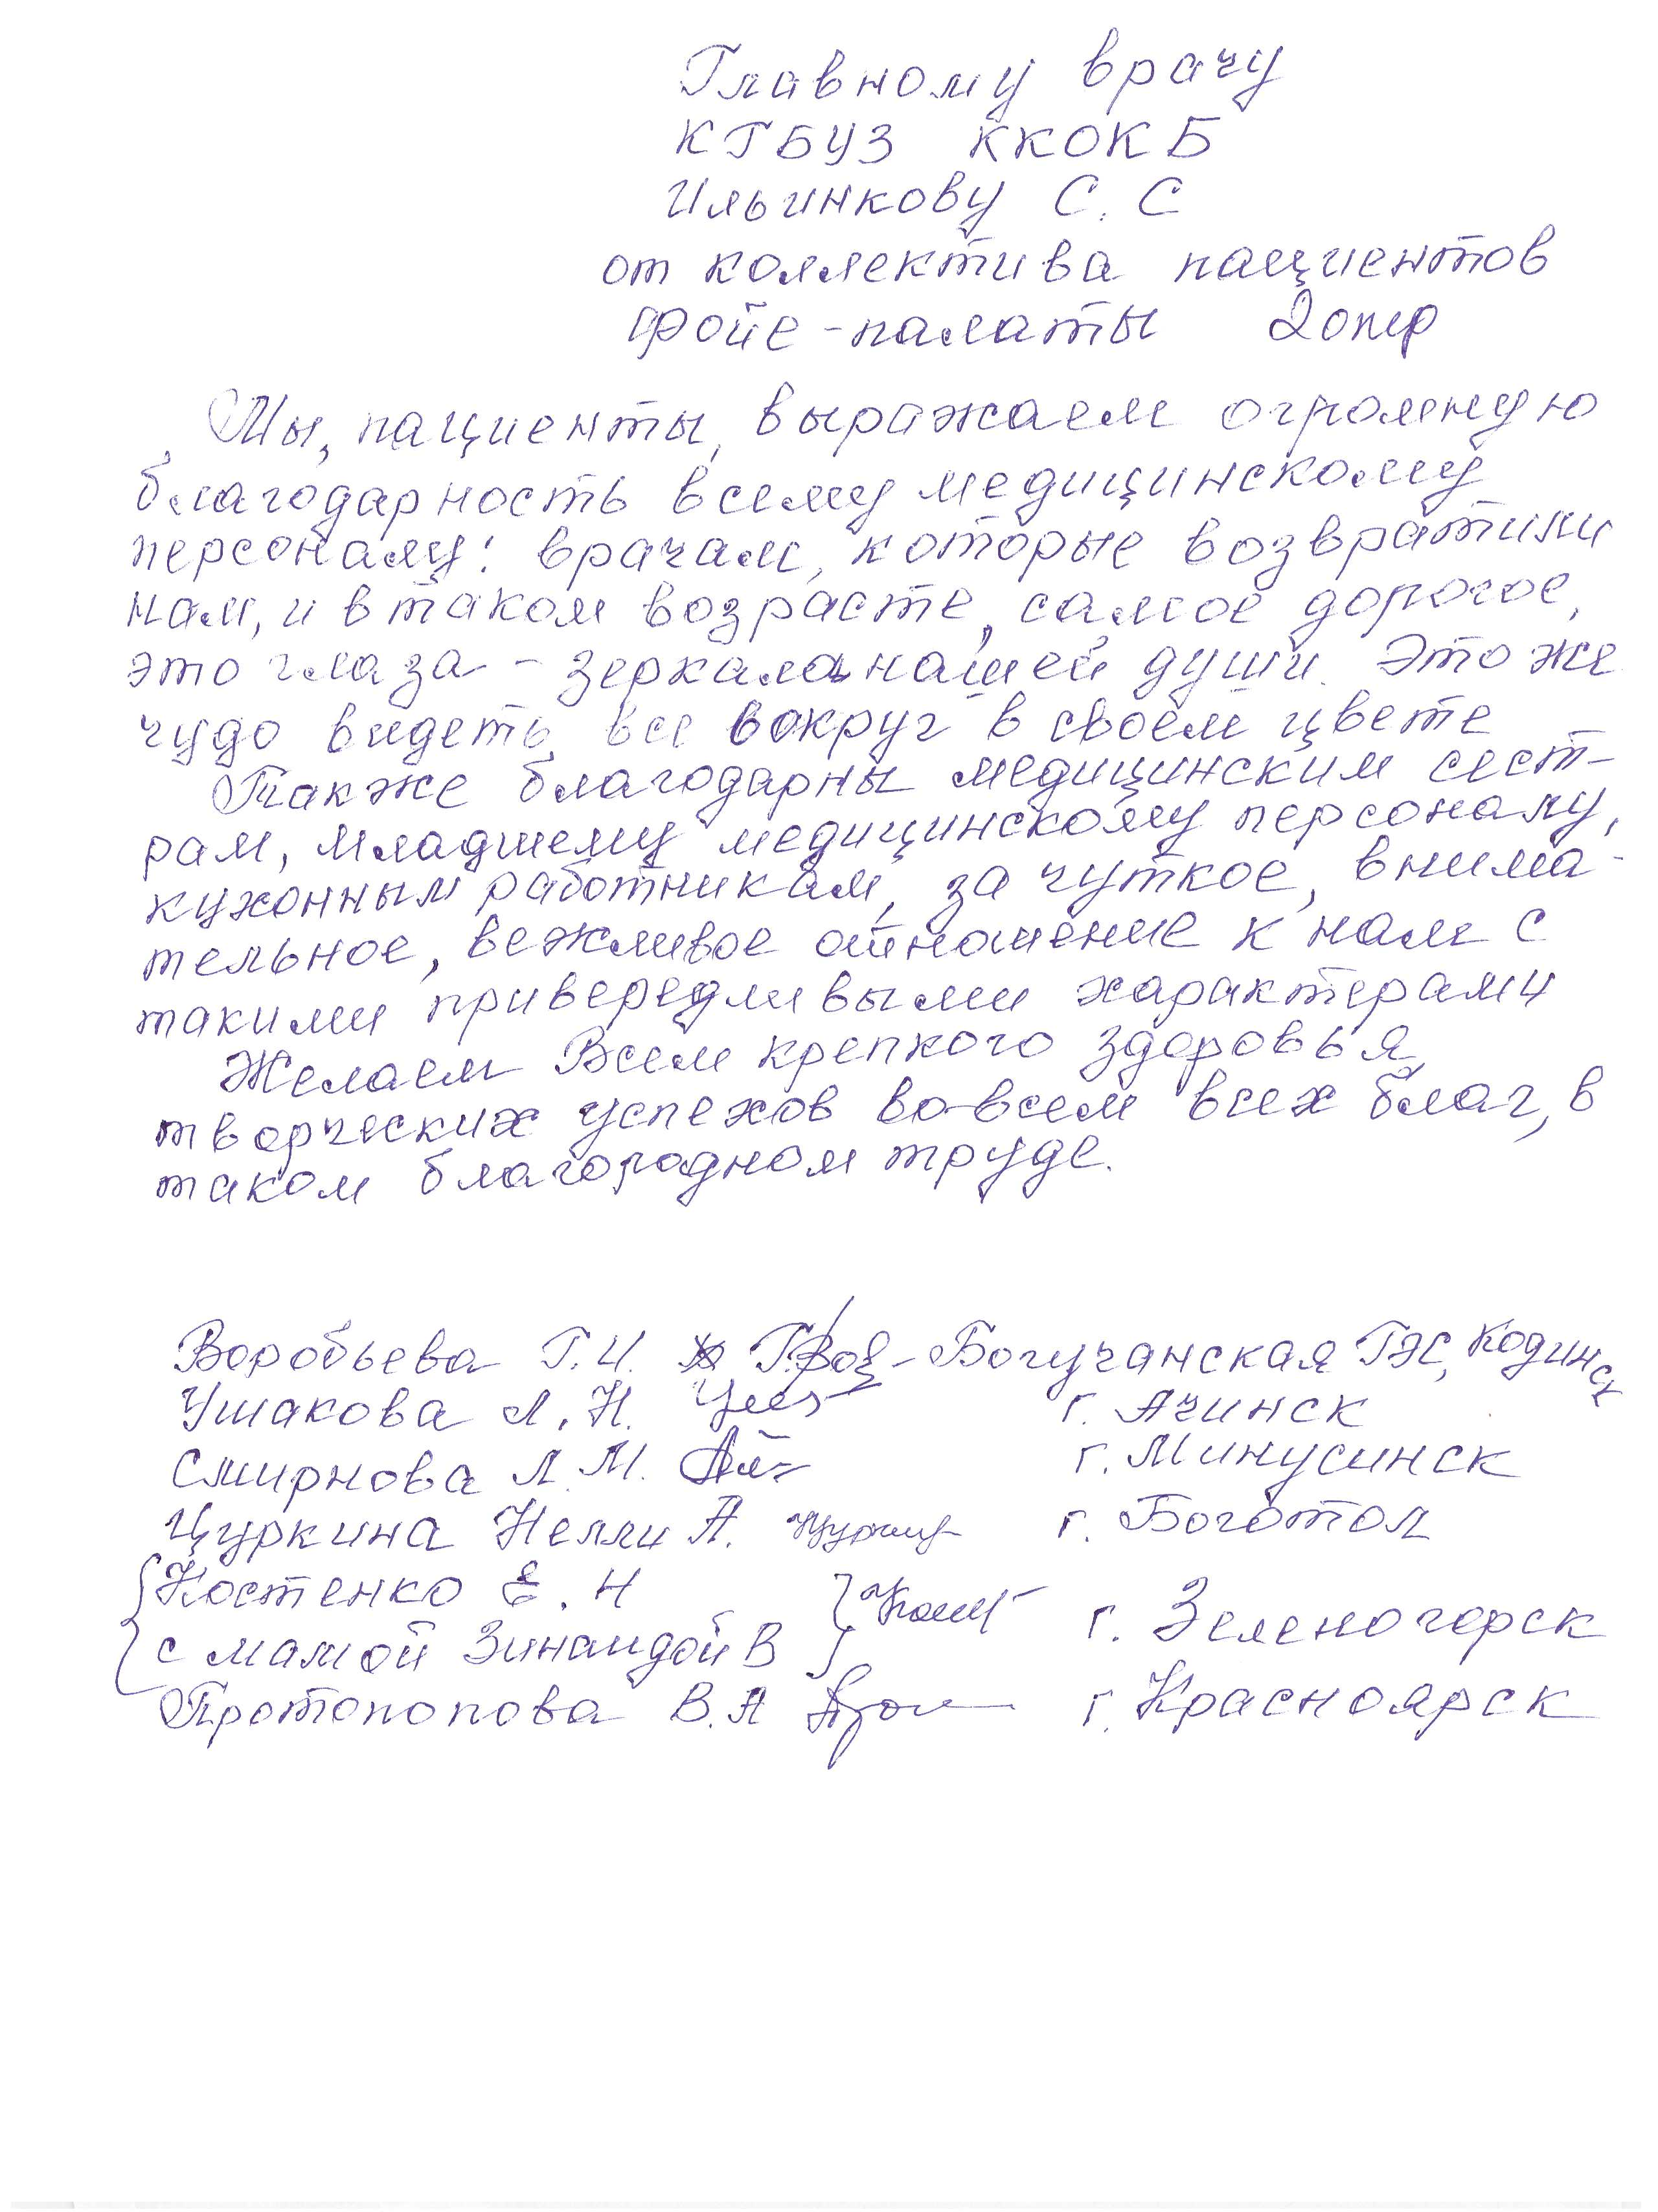 Главному врачу
КГБУЗ ККОКБ
Ильинкову С. С
от коллектива пациентов
фойе-палаты 2 опер
Мы, пациенты, выражаем огромную
благодарность всему медицинскому
персоналу: врачам, которые возвратили
нам, и в таком возрасте, самое дорогое,
это глаза - зеркала нашей души. Это же
чудо видеть все вокруг в своем цвете
Также благодарны медицинским сест-
рам, младшему медицинскому персоналу,
кухонным работникам, за чуткое, внима-
тельное, вежливое отношение к нам с
такими привередливыми характерами
Желаем Всем крепкого здоровья,
творческих успехов во всем всех благ, в
таком благородном труде.
Воробьева Г.И. - Богучанская ГЭС, Кодинск
Ушакова Л.Н. г. Ачинск
Смирнова Л.М. г. Минусинск
Цуркина Нелли А. г. Боготол
Костенко Е. Н
с мамой Зинаидой В г. Зеленогорск
Протопопова В.А г. Красноярск